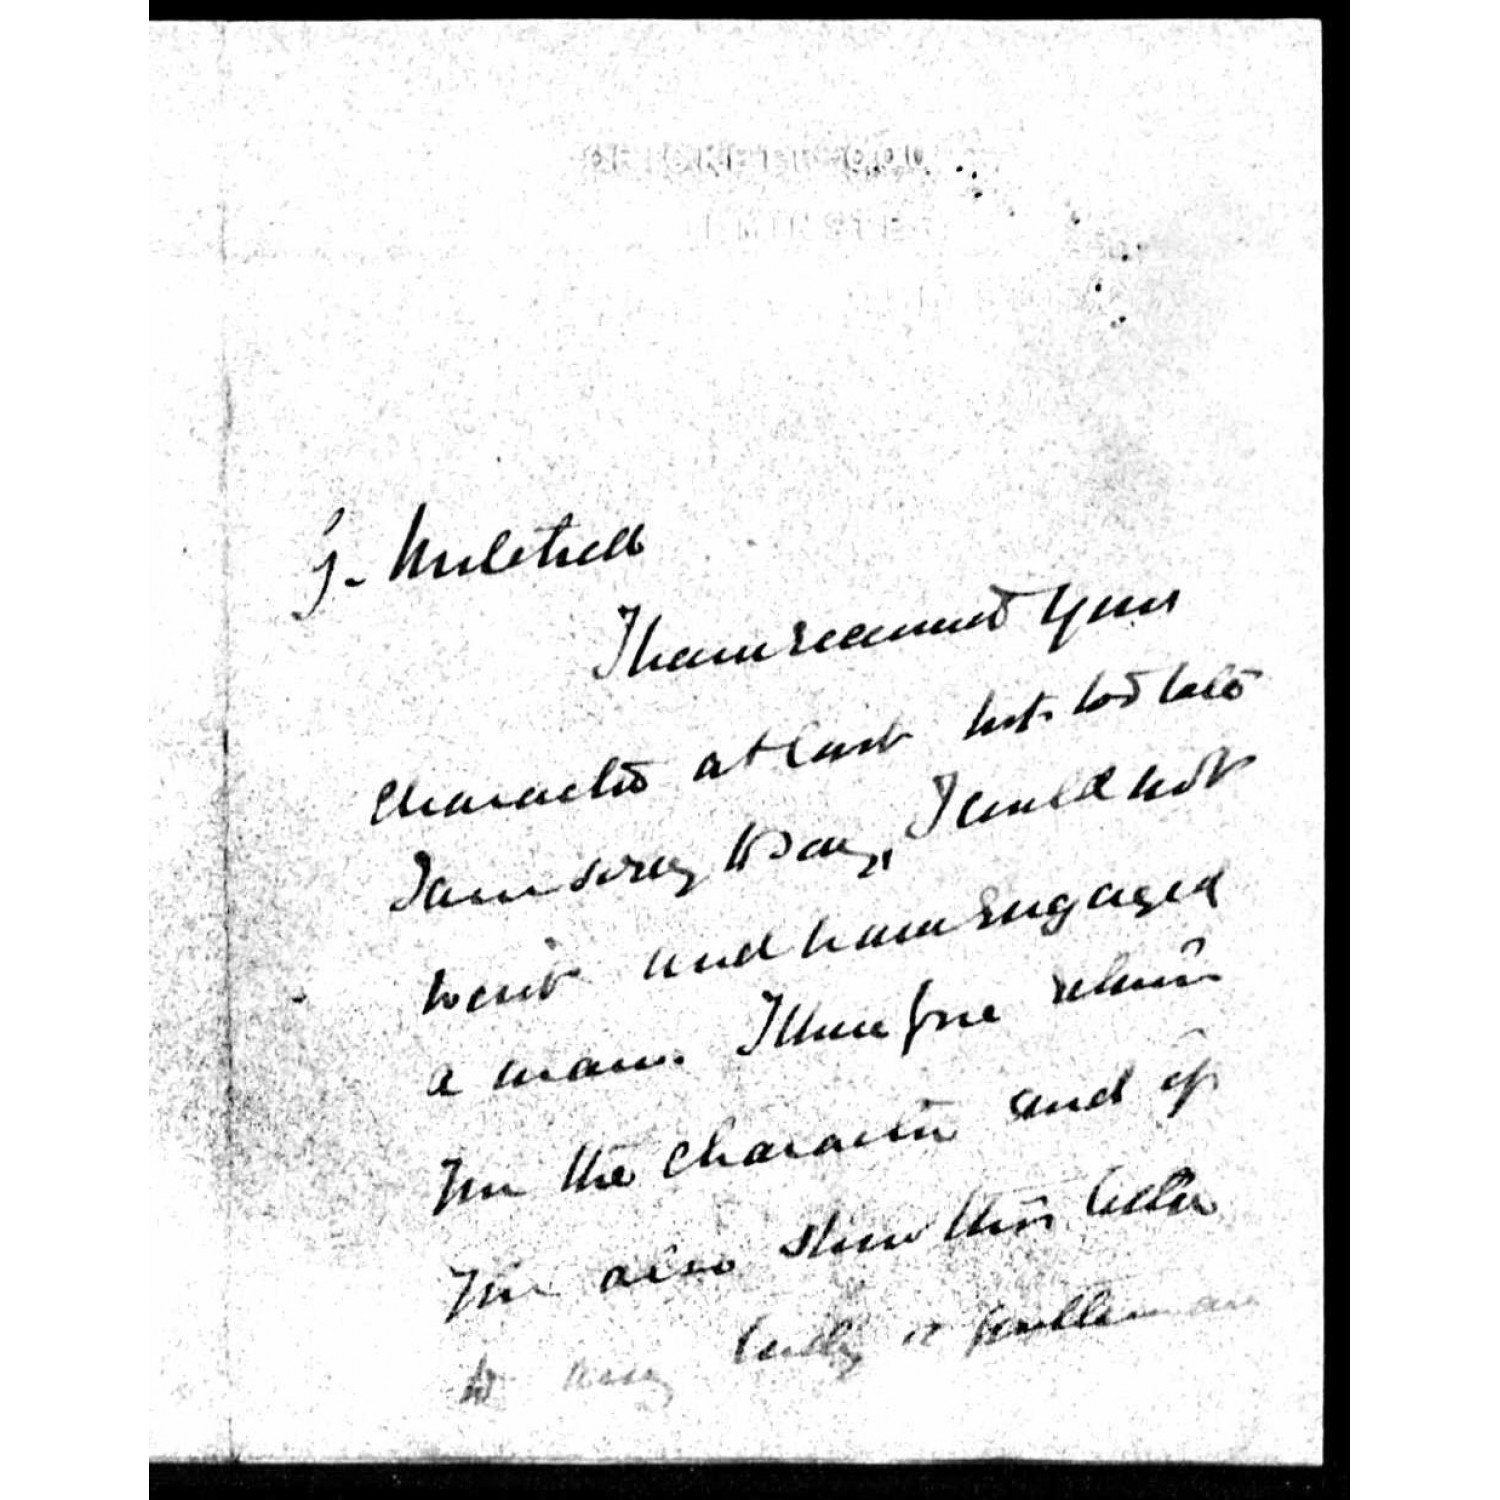 J. Mitchell
I have received your
character at last but too late
I am sorry to say, I could not
wait and have engaged
a man. I therefore return
you the character and if
you also show this letter
to any lady or gentleman